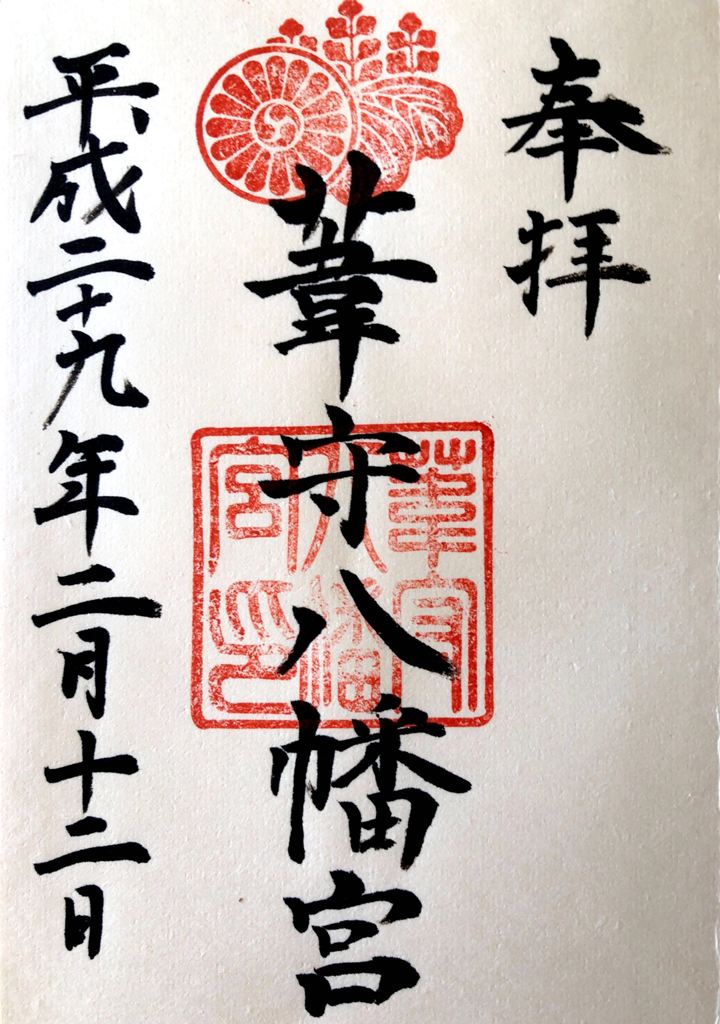 奉拝
葦守八幡宮
葦守八幡宮印
平成二十九年二月十二日